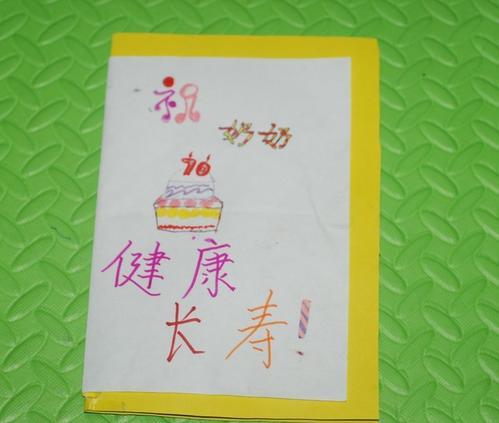 祝
奶奶
70
健康
长寿!